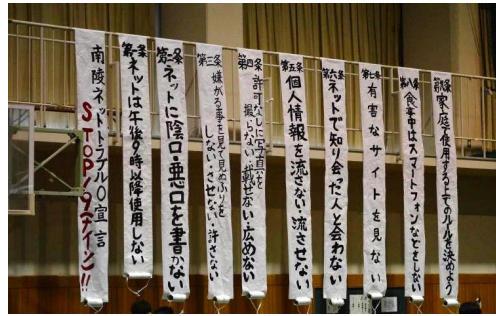 南陵ネットトラブル0宣言
STOP!9デイン!!
第一条
ネットは午後9時以降使用しない
第二条
ネットに陰口・悪口を書かない
第三条
嫌がる事を見て見ぬふりを
しない・させない・許さない
第四条
許可なしに写真を
撮らない・載せない・広めない
第五条
個人情報を流さない・流させない
第六条
ネットで知り合った人と会わない
第七条
有害なサイトを見ない
第八条
食事中はスマートフォンなどをしない
第九条
家庭で使用する上でのルールを決めよう